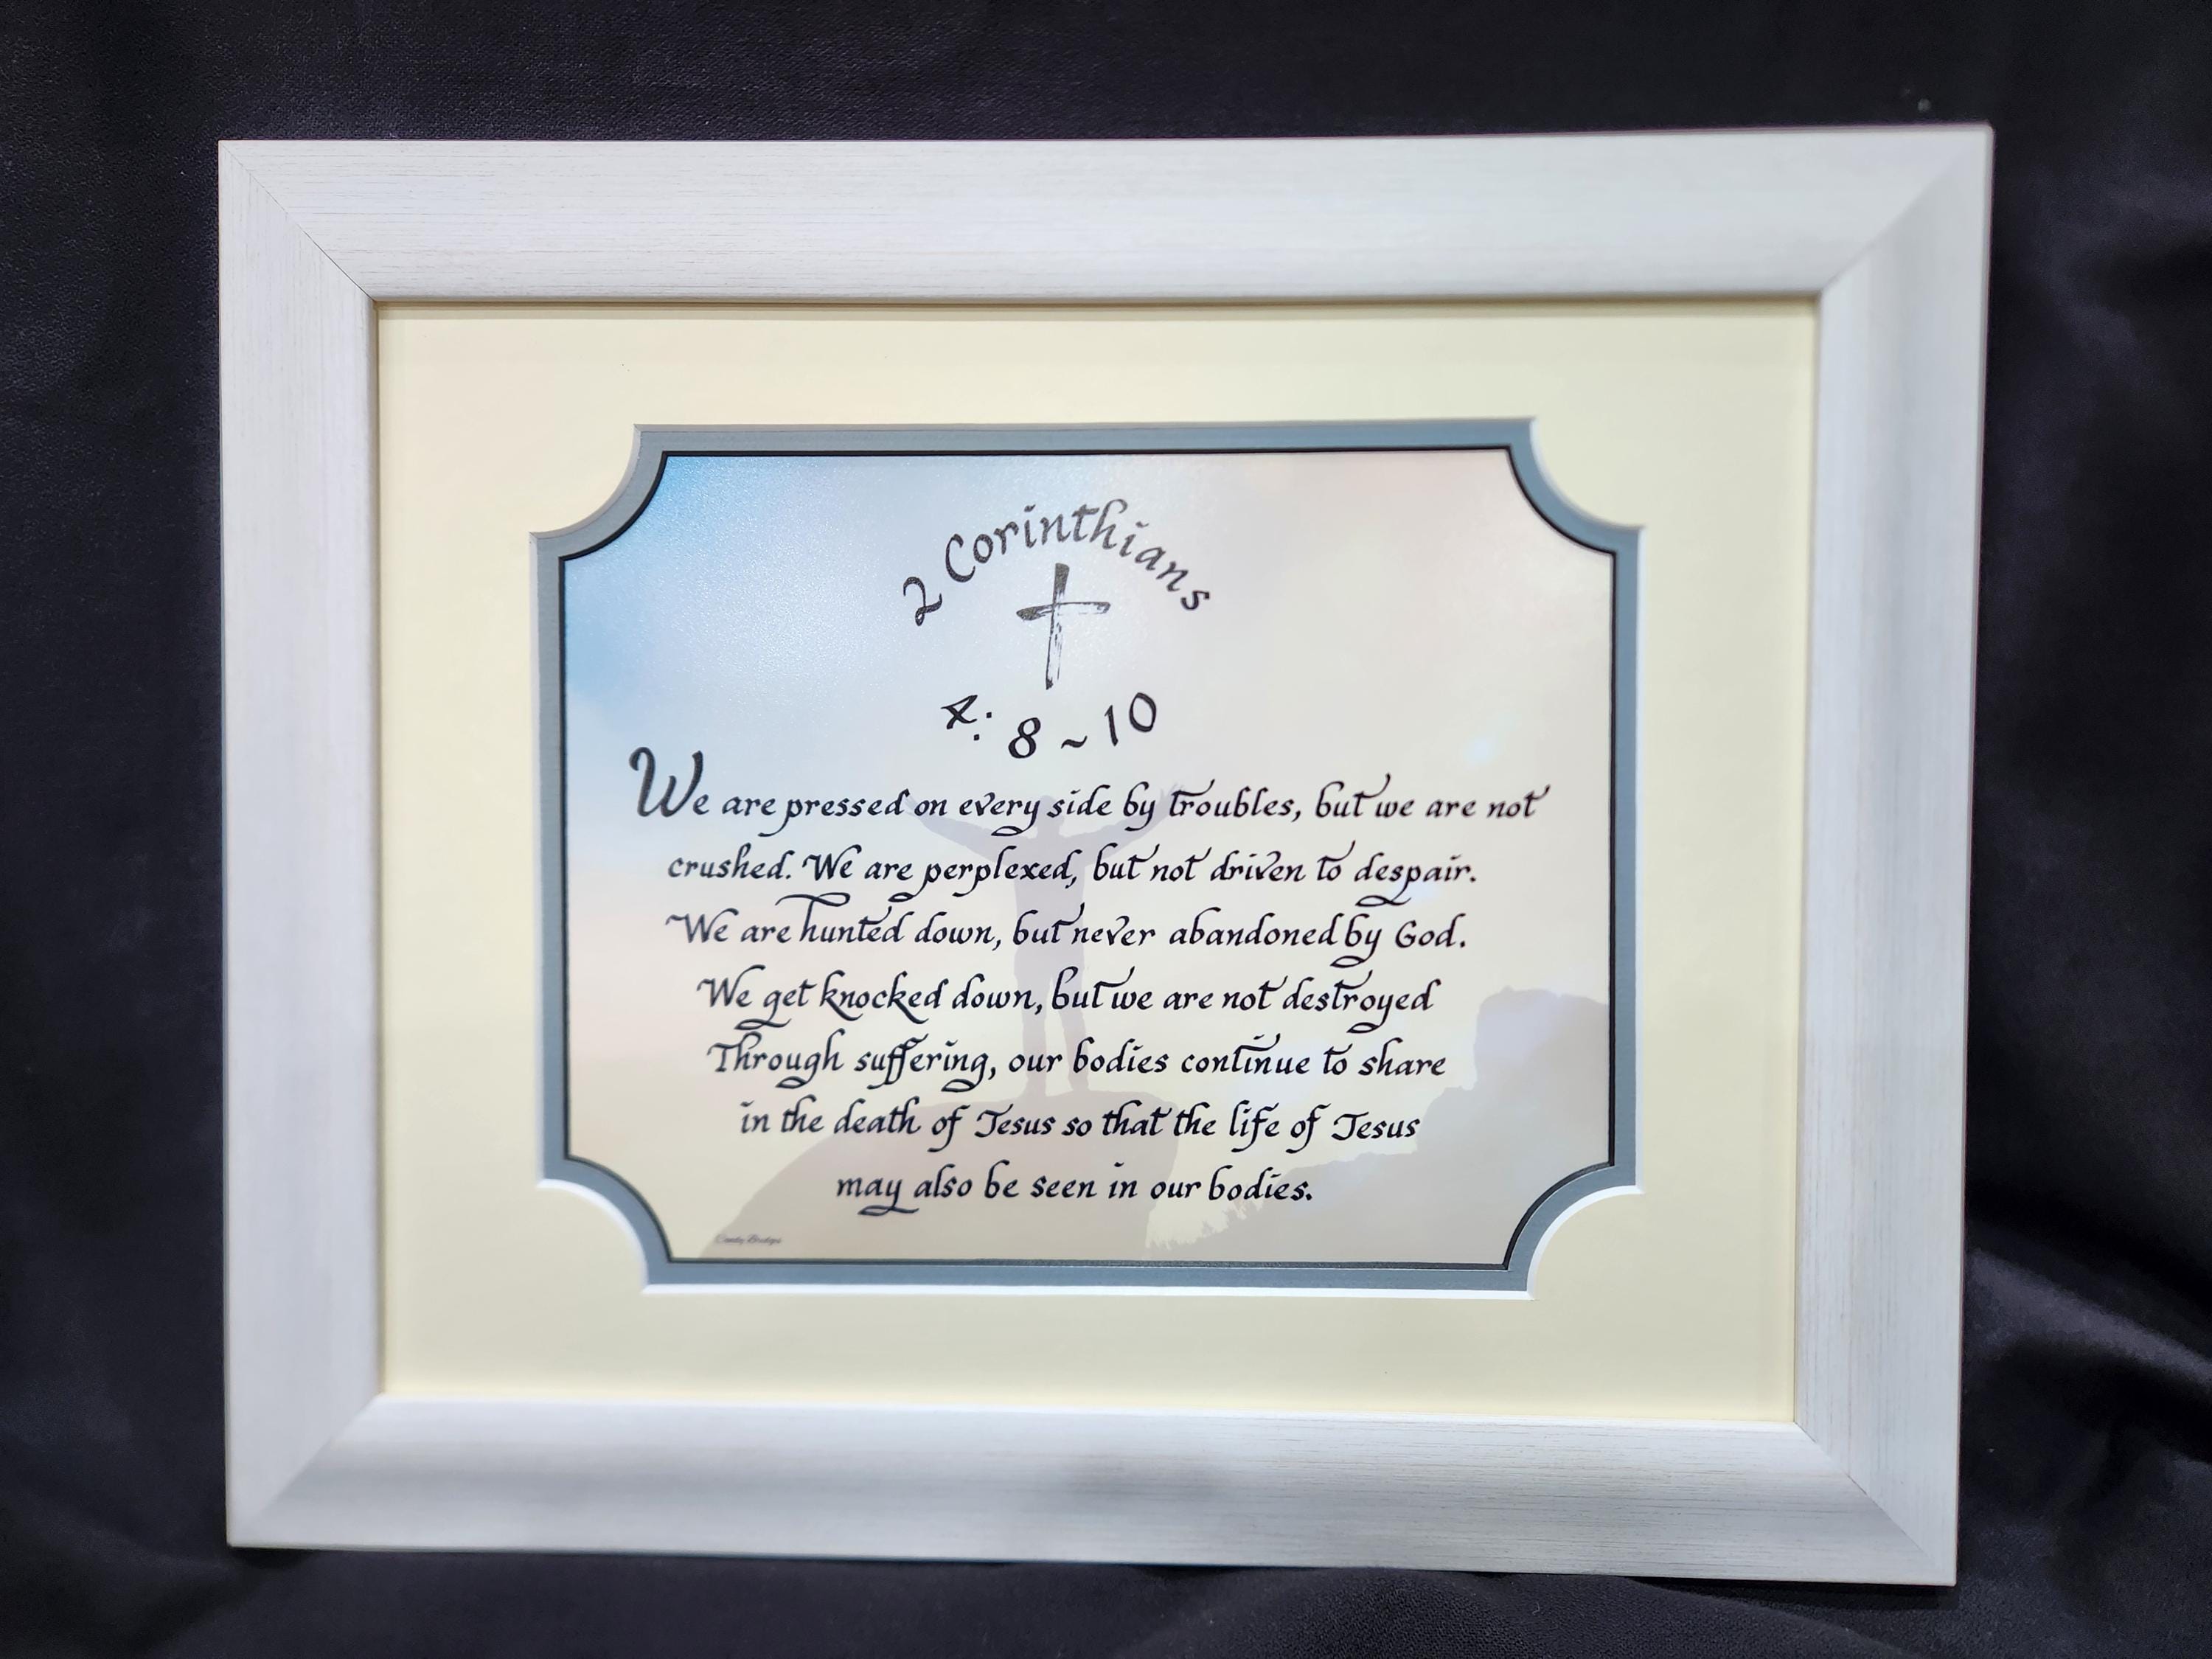 2 Corinthians
4:8~10
We are pressed on every side by troubles, but we are not
crushed. We are perplexed, but not driven to despair.
We are hunted down, but never abandoned by God.
We get knocked down, but we are not destroyed
Through suffering, our bodies continue to share
in the death of Jesus so that the life of Jesus
may also be seen in our bodies.